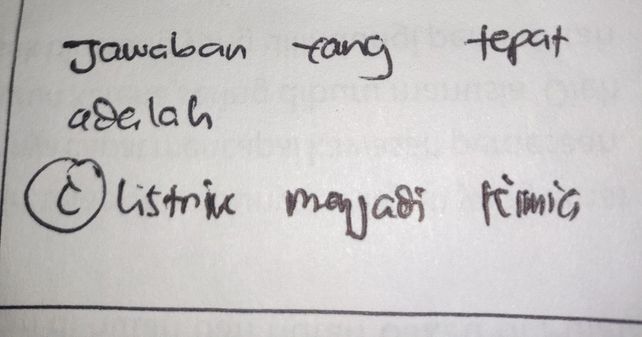 Jawaban yang tepat
adalah
C listrik menjadi kimia